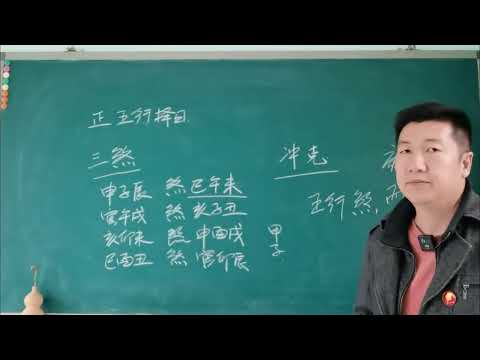 正五行择日
三煞
冲克
申子辰 煞 巳午未
寅午戌 煞 亥子丑
亥卯未 煞 申酉戌
巳酉丑 煞 寅卯辰
甲子
五行煞